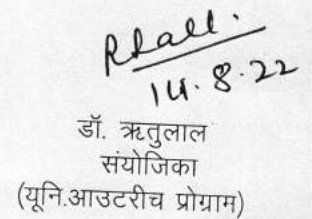 RLall.
14.8.22
डॉ. ऋतुलाल
संयोजिका
(यूनि.आउटरीच प्रोग्राम)